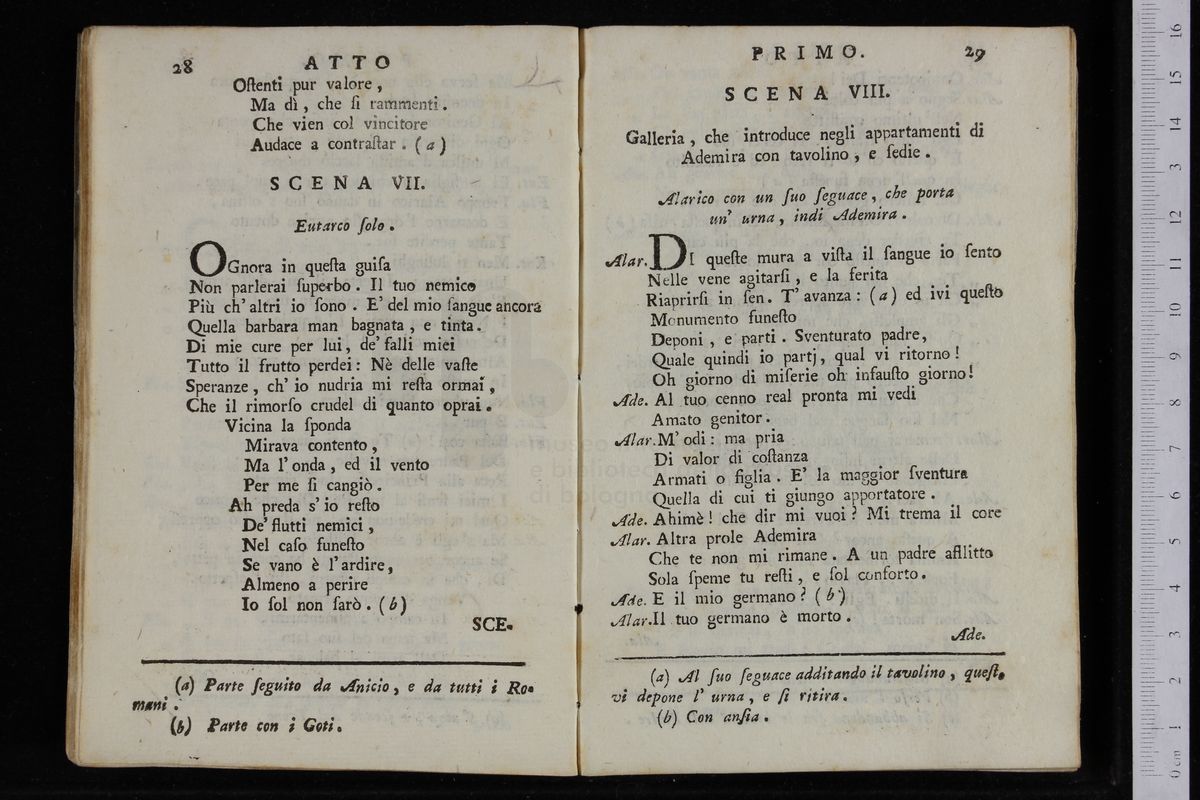 28
ATTO
Oſtenti pur valore ,
Ma dì , che ſi rammenti .
Che vien col vincitore
Audace a contraſtar . ( a )
SCENA VII.
Eutarco ſolo .
OGnora in queſta guiſa
Non parlerai ſuperbo . Il tuo nemico
Più ch' altri io ſono . E' del mio ſangue ancora
Quella barbara man bagnata , e tinta .
Di mie cure per lui , de' falli miei
Tutto il frutto perdei : Nè delle vaſte
Speranze , ch' io nudria mi reſta ormai ,
Che il rimorſo crudel di quanto oprai .
Vicina la ſponda
Mirava contento ,
Ma l' onda , ed il vento
Per me ſi cangiò .
Ah preda s' io reſto
De' flutti nemici ,
Nel caſo funeſto
Se vano è l' ardire ,
Almeno a perire
Io ſol non ſarò . ( b )
SCE-
(a) Parte ſeguito da Anicio , e da tutti i Ro-
mani .
(b) Parte con i Goti .
PRIMO.
29
SCENA VIII.
Galleria , che introduce negli appartamenti di
Ademira con tavolino , e ſedie .
Alarico con un ſuo ſeguace , che porta
un' urna , indi Ademira .
Alar. DI queſte mura a viſta il ſangue io ſento
Nelle vene agitarſi , e la ferita
Riaprirſi in ſen. T' avanza : ( a ) ed ivi queſto
Monumento funeſto
Deponi , e parti . Sventurato padre,
Quale quindi io partj , qual vi ritorno !
Oh giorno di miſerie oh infauſto giorno!
Ade. Al tuo cenno real pronta mi vedi
Amato genitor .
Alar. M' odi : ma pria
Di valor di coſtanza
Armati o figlia . E' la maggior ſventura
Quella di cui ti giungo apportatore .
Ade. Ahimè ! che dir mi vuoi ? Mi trema il core
Alar. Altra prole Ademira
Che te non mi rimane . A un padre afflitto
Sola ſpeme tu reſti , e ſol conforto .
Ade. E il mio germano ? ( b )
Alar. Il tuo germano è morto .
Ade.
(a) Al ſuo ſeguace additando il tavolino , queſt.
vi depone l' urna , e ſi ritira .
(b) Con anſia .
museo
e biblioteca
di bologna
0 cm 1 2 3 4 5 6 7 8 9 10 11 12 13 14 15 16